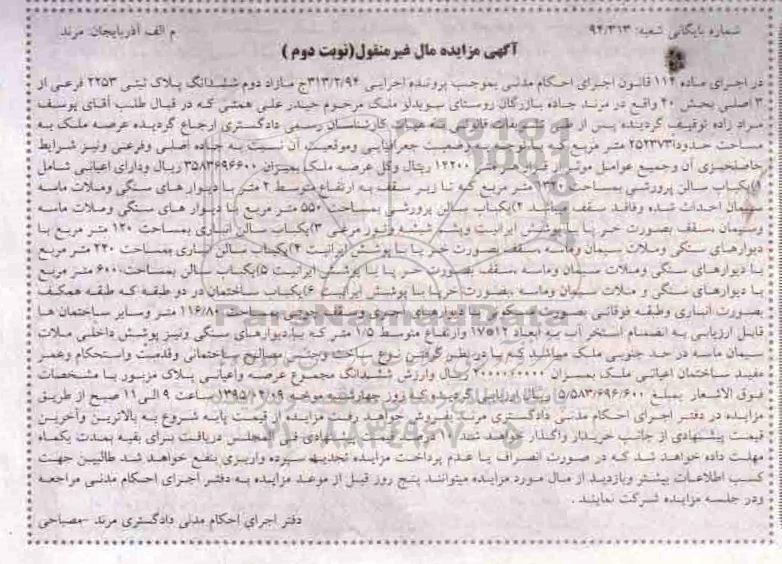 شماره بایگانی شعبه: ۹۴/۳۱۳
م الف آذربایجان: مرند
آگهی مزایده مال غیرمنقول(نوبت دوم)
در اجرای ماده ۱۱۴ قانون اجرای احکام مدنی بموجب پرونده اجرایی ۳۱۳/۲/۹۴ج مازاد دوم ششدانگ پلاک ثبتی ۲۲۵۳ فرعی از
۳ اصلی بخش ۲۰ واقع در مرند جاده بازرگان روستای سویدلو ملک مرحوم حیدر علی همتی که در قبال طلب آقای یوسف
مراد زاده توقیف گردیده پس از طی تشریفات قانونی به هیات کارشناسان رسمی دادگستری ارجاع گردیده عرصه ملک به
مساحت حدودا ۲۵۲۳۷۳ متر مربع که با توجه به وضعیت جغرافیایی وموقعیت آن نسبت به جاده اصلی وفرعی ونیز شرایط
حاصلخیزی آن وجمیع عوامل موثر از قرار هر متر ۱۴۲۰۰ ریال وکل عرصه ملک بمیزان ۳۵۸۳۶۹۶۶۰۰ ریال ودارای اعیانی شامل
۱)یکباب سالن پرورشی بمساحت ۱۳۲۰ متر مربع که تا زیر سقف به ارتفاع متوسط ۲ متر با دیوار های سنگی وملات ماسه
سیمان احداث شده وفاقد سقف میباشد ۲)یکباب سالن پرورشی بمساحت ۵۵۰ متر مربع با دیوار های سنگی وملات ماسه
وسیمان ،سقف بصورت خر پا با پوشش ایرانیت وپشم شیشه وتور مرغی ۳)یکباب سالن انباری بمساحت ۱۲۰ متر مربع با
دیوارهای سنگی وملات سیمان وماسه ،سقف بصورت خر پا با پوشش ایرانیت ۴)یکباب سالن انباری بمساحت ۲۴۰ متر مربع
با دیوارهای سنگی وملات سیمان وماسه ،سقف بصورت خر پا با پوشش ایرانیت ۵)یکباب سالن بمساحت ۶۰۰ متر مربع
با دیوارهای سنگی و ملات سیمان وماسه بصورت خرپا با پوشش ایرانیت ۶)یکباب ساختمان در دو طبقه که طبقه همکف
بصورت انباری وطبقه فوقانی بصورت مسکونی با دیوارهای آجری وسقف چوبی بمساحت ۱۱۶/۸۰ متر وسایر ساختمان ها
قابل ارزیابی به انضمام استخر آب به ابعاد ۱۲*۱۷۵ وارتفاع متوسط ۱/۵ متر که با دیوارهای سنگی ونیز پوشش داخلی ملات
سیمان ماسه در حد جنوبی ملک میباشد که با در نظر گرفتن نوع ساخت وجنس مصالح ساختمانی وقدمت واستحکام وعمر
مفید ساختمان اعیانی ملک بمیزان ۲۰۰۰۰۰۰۰۰۰ ریال وارزش ششدانگ مجموع عرصه واعیانی پلاک مزبور با مشخصات
فوق الاشعار بمبلغ ۵/۵۸۳/۶۹۶/۶۰۰ ریال ارزیابی گردیده که روز چهارشنبه مورخه ۱۳۹۵/۰۲/۰۹ ساعت ۹ الی ۱۱ صبح از طریق
مزایده در دفتر اجرای احکام مدنی دادگستری مرند بفروش خواهد رفت مزایده از قیمت پایه شروع به بالاترین وآخرین
قیمت پیشنهادی از جانب خریدار واگذار خواهد شد ۱۰ درصد قیمت پیشنهادی فی المجلس دریافت برای بقیه بمدت یکماه
مهلت داده خواهد شد که در صورت انصراف یا عدم پرداخت مزایده تجدید سپرده واریزی بنفع خواهد شد طالبین جهت
کسب اطلاعات بیشتر وبازدید از مال مورد مزایده میتوانند پنج روز قبل از موعد مزایده به دفتر اجرای احکام مدنی مراجعه
ودر جلسه مزایده شرکت نمایند .
دفتر اجرای احکام مدنی دادگستری مرند -مصباحی
ParsNamadData